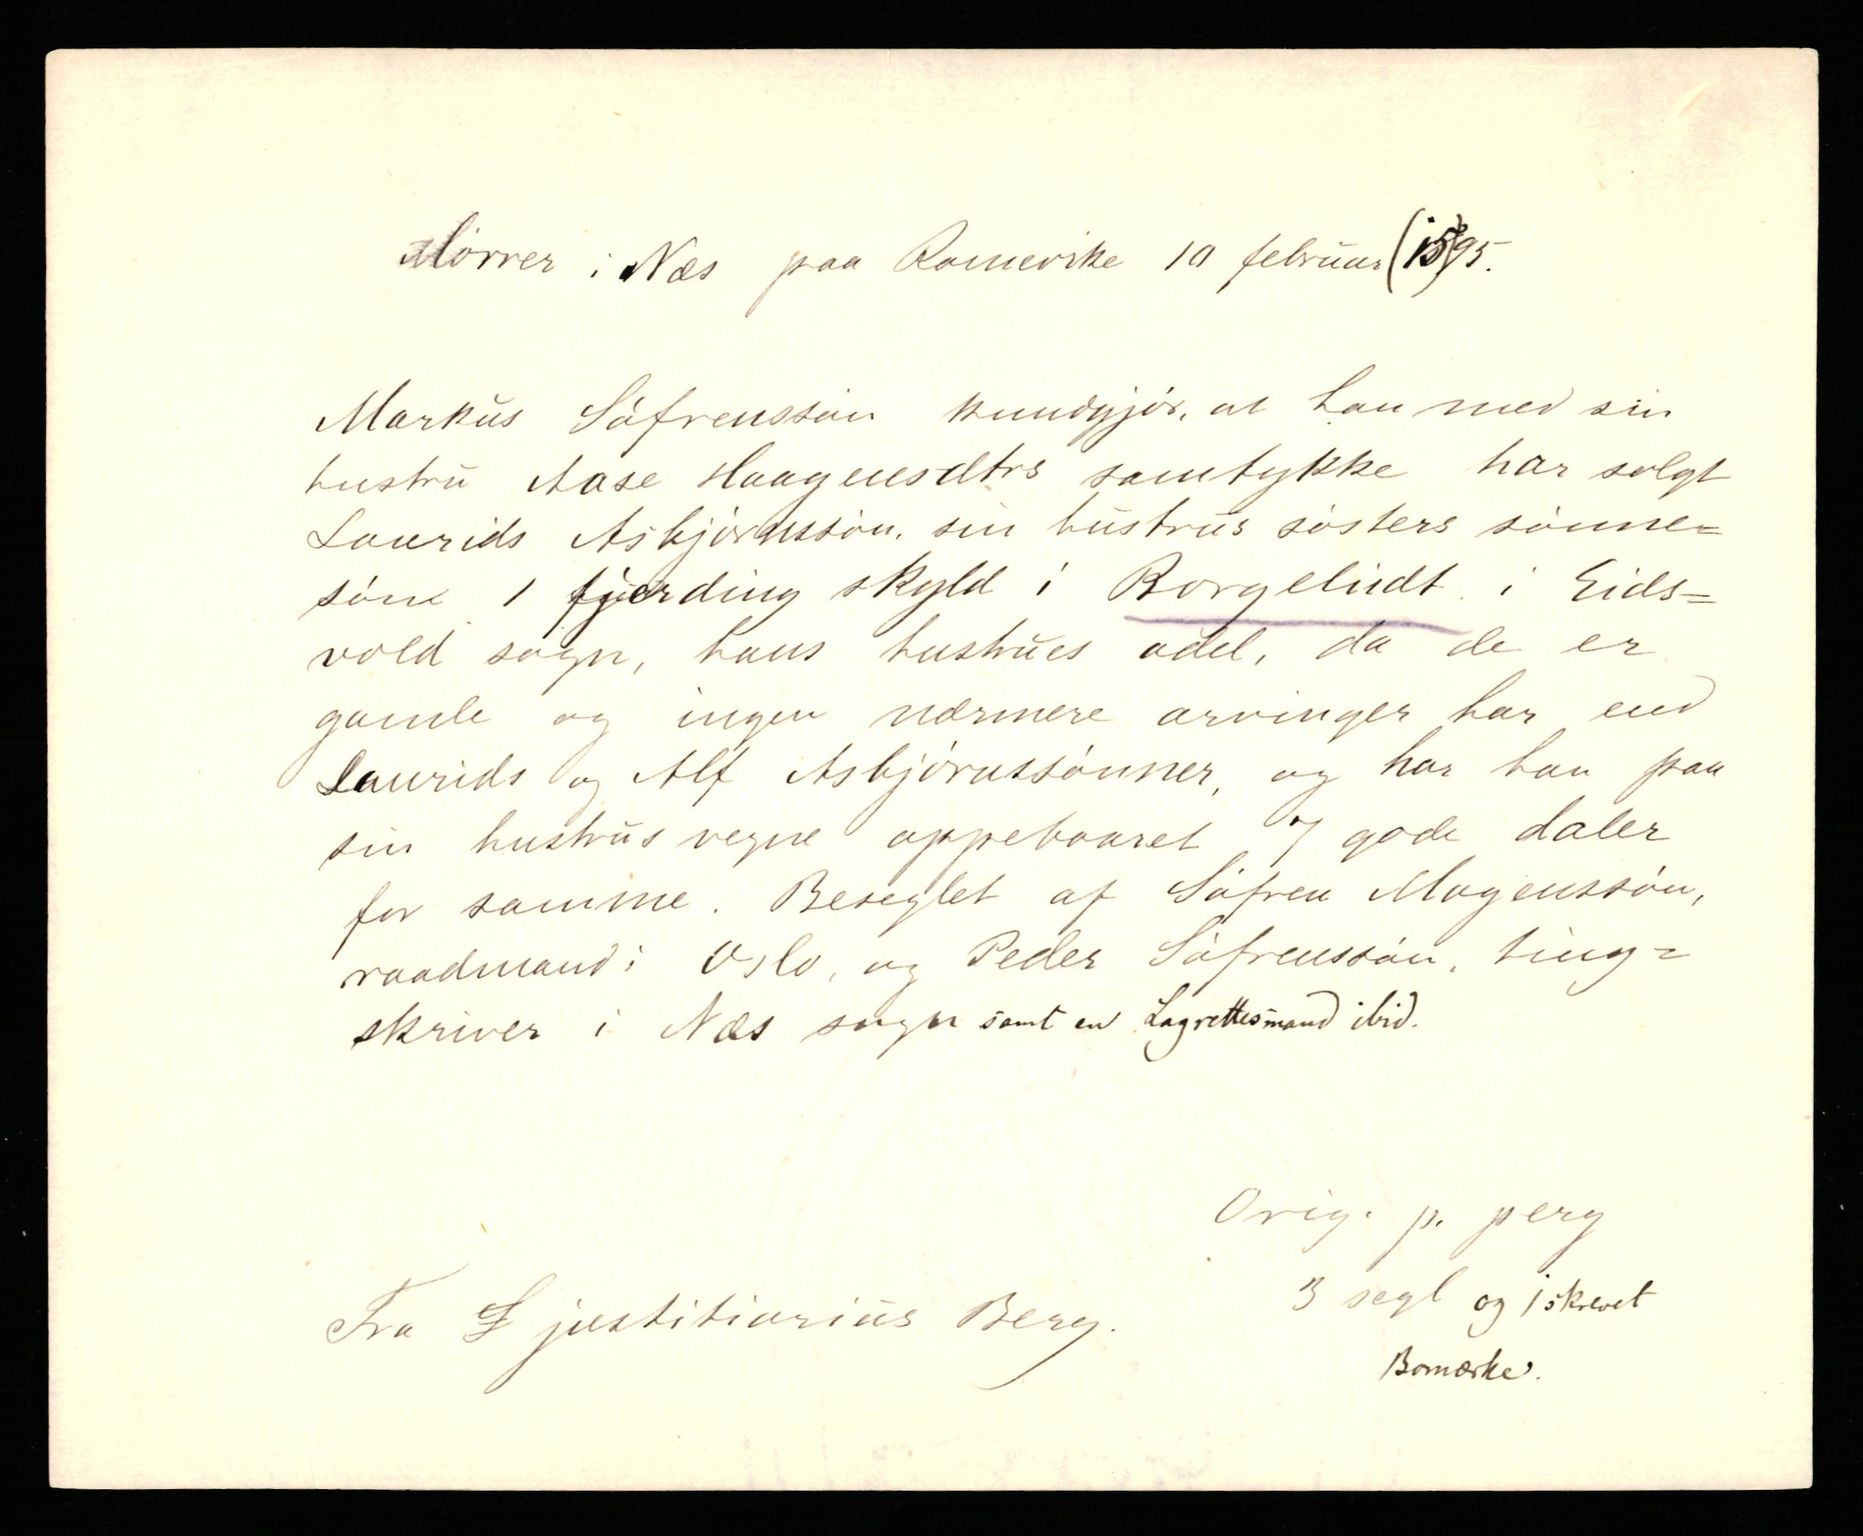 Hörver i Næs paa Romerike 10 februar (15)95.
Markus Söfrenssön kundgjör, at han med sin
hustru Aase Haagensdtrs samtykke har solgt
Laurids Asbjörnssön, sin hustrus sösters sönne=
söne 1 fjerding skyld i Borgelindt i Eids=
vold sogn, hans hustrues odel, da de er
gamle og ingen nærmere arvinger har end
Laurids og Alf Asbjörnssönner, og har han paa
sin hustrus vegne oppebaaret 7 gode daler
for samme. Beseglet af Söfren Mogenssön,
raadmand i Oslo, og Peder Söfrenssön, ting=
skriver i Næs sogn samt en Lagrettesmand ibid.
Orig. p. perg
3 segl og 1 skrevet
Bomærke.
Fra justitiarius Berg.